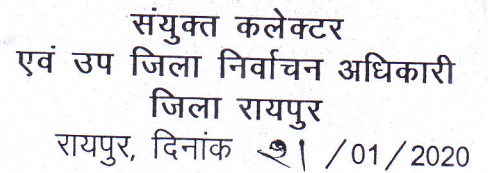 संयुक्त कलेक्टर
एवं उप जिला निर्वाचन अधिकारी
जिला रायपुर
रायपुर, दिनांक /01/2020